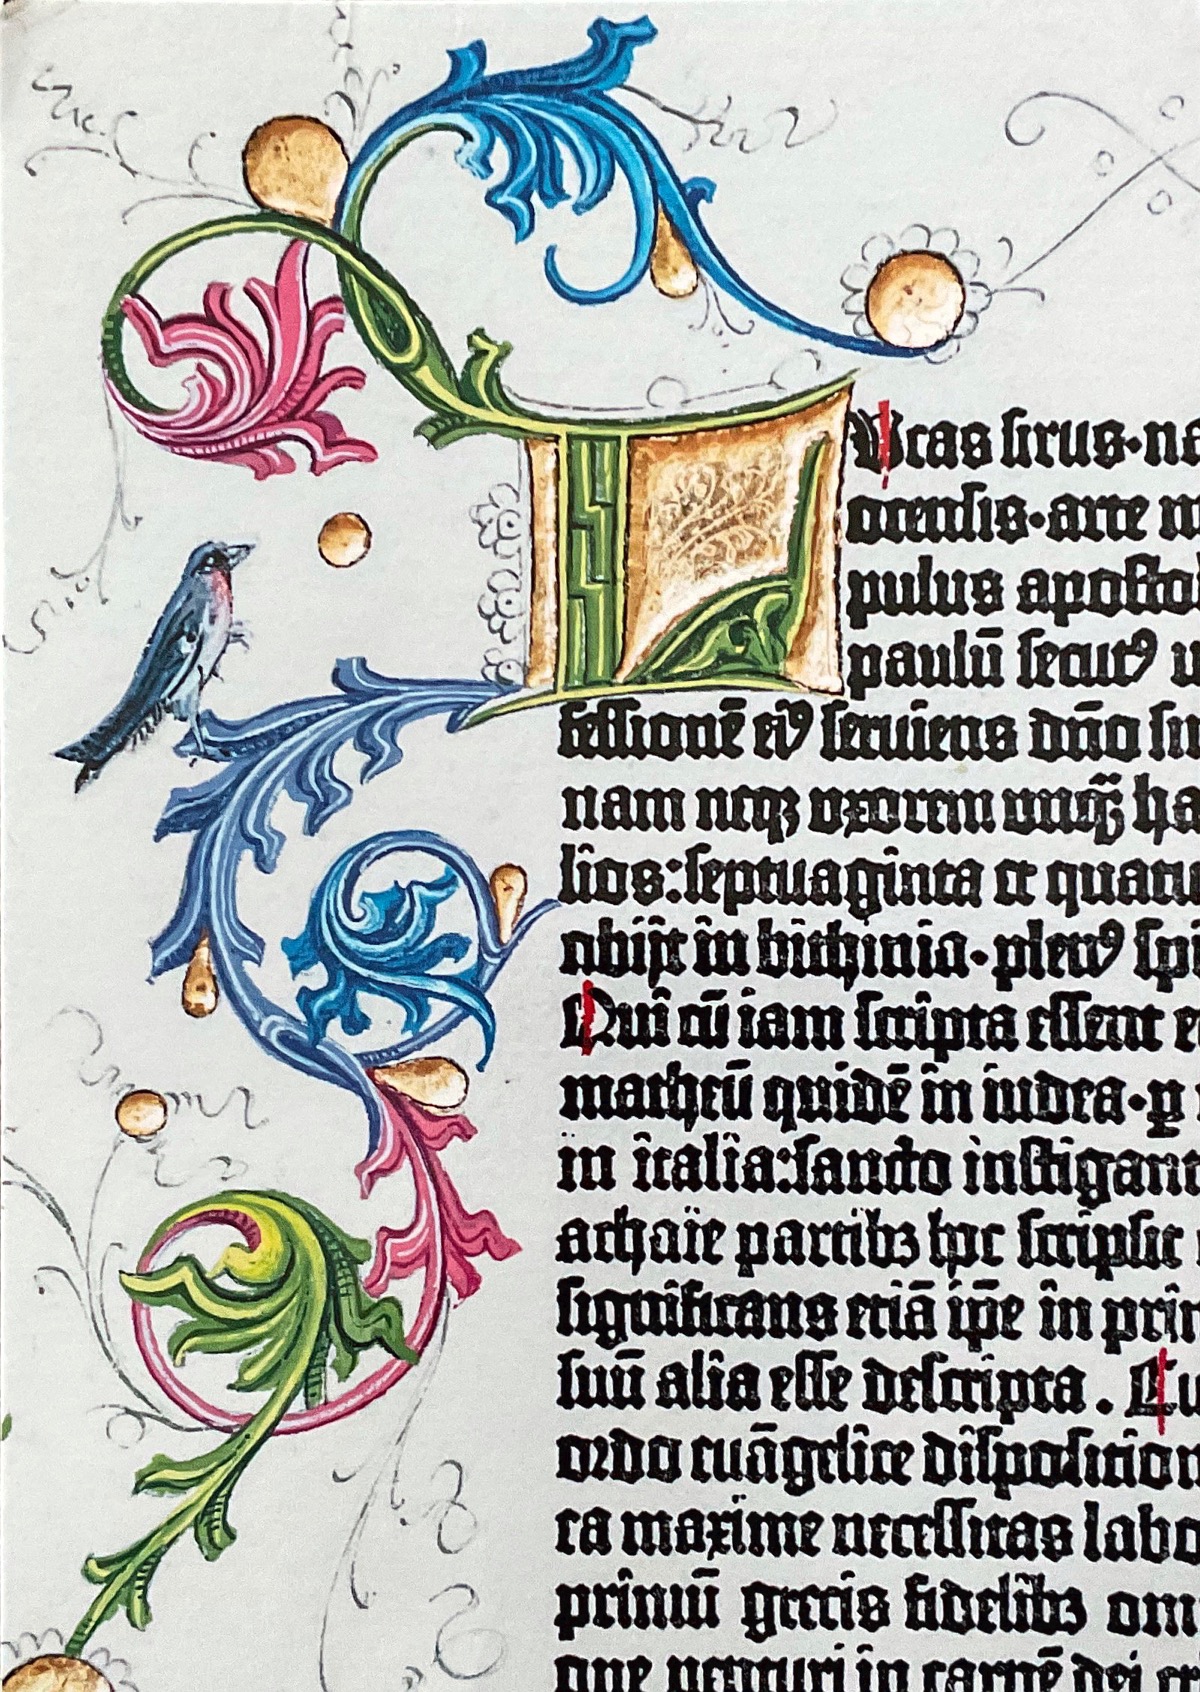 Lucas sirus·na
ocensis·arte m
pulus apostol
paulū secutꝰ u
fessionē eiꝰ seruiens dn̄o si
nam neqꝫ uxorem unqꝫ̄ ha
lios:septuaginta et quatu
abijt in bithinia·plenꝰ spi
Qui cū iam scripta essent e
matheū quidē in iudea·ꝑ
in italia:sancto instigant
achaie partibꝫ hoc scripsit
significans etiā ip̄e in prin
suū alia esse descripta. Cu
ordo euāgelice disposition
ca maxime necessitas labo
primū grecis fidelibꝫ om
one uenturi in carnē dei